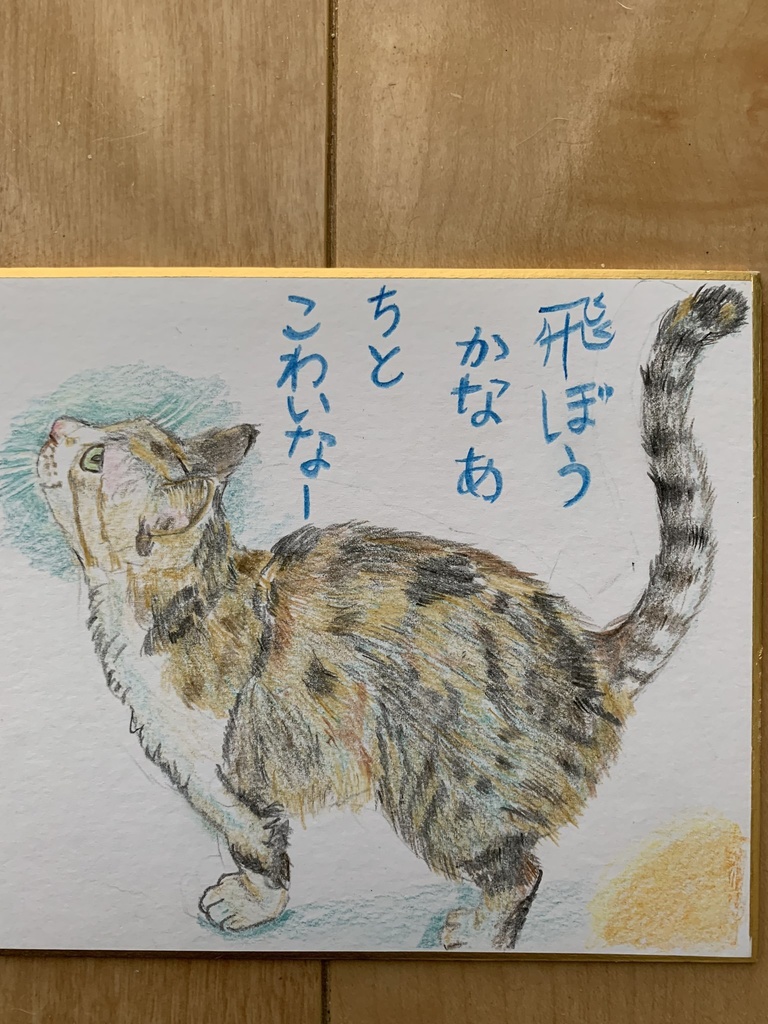 飛ぼう
かなあ
ちと
こわいなー